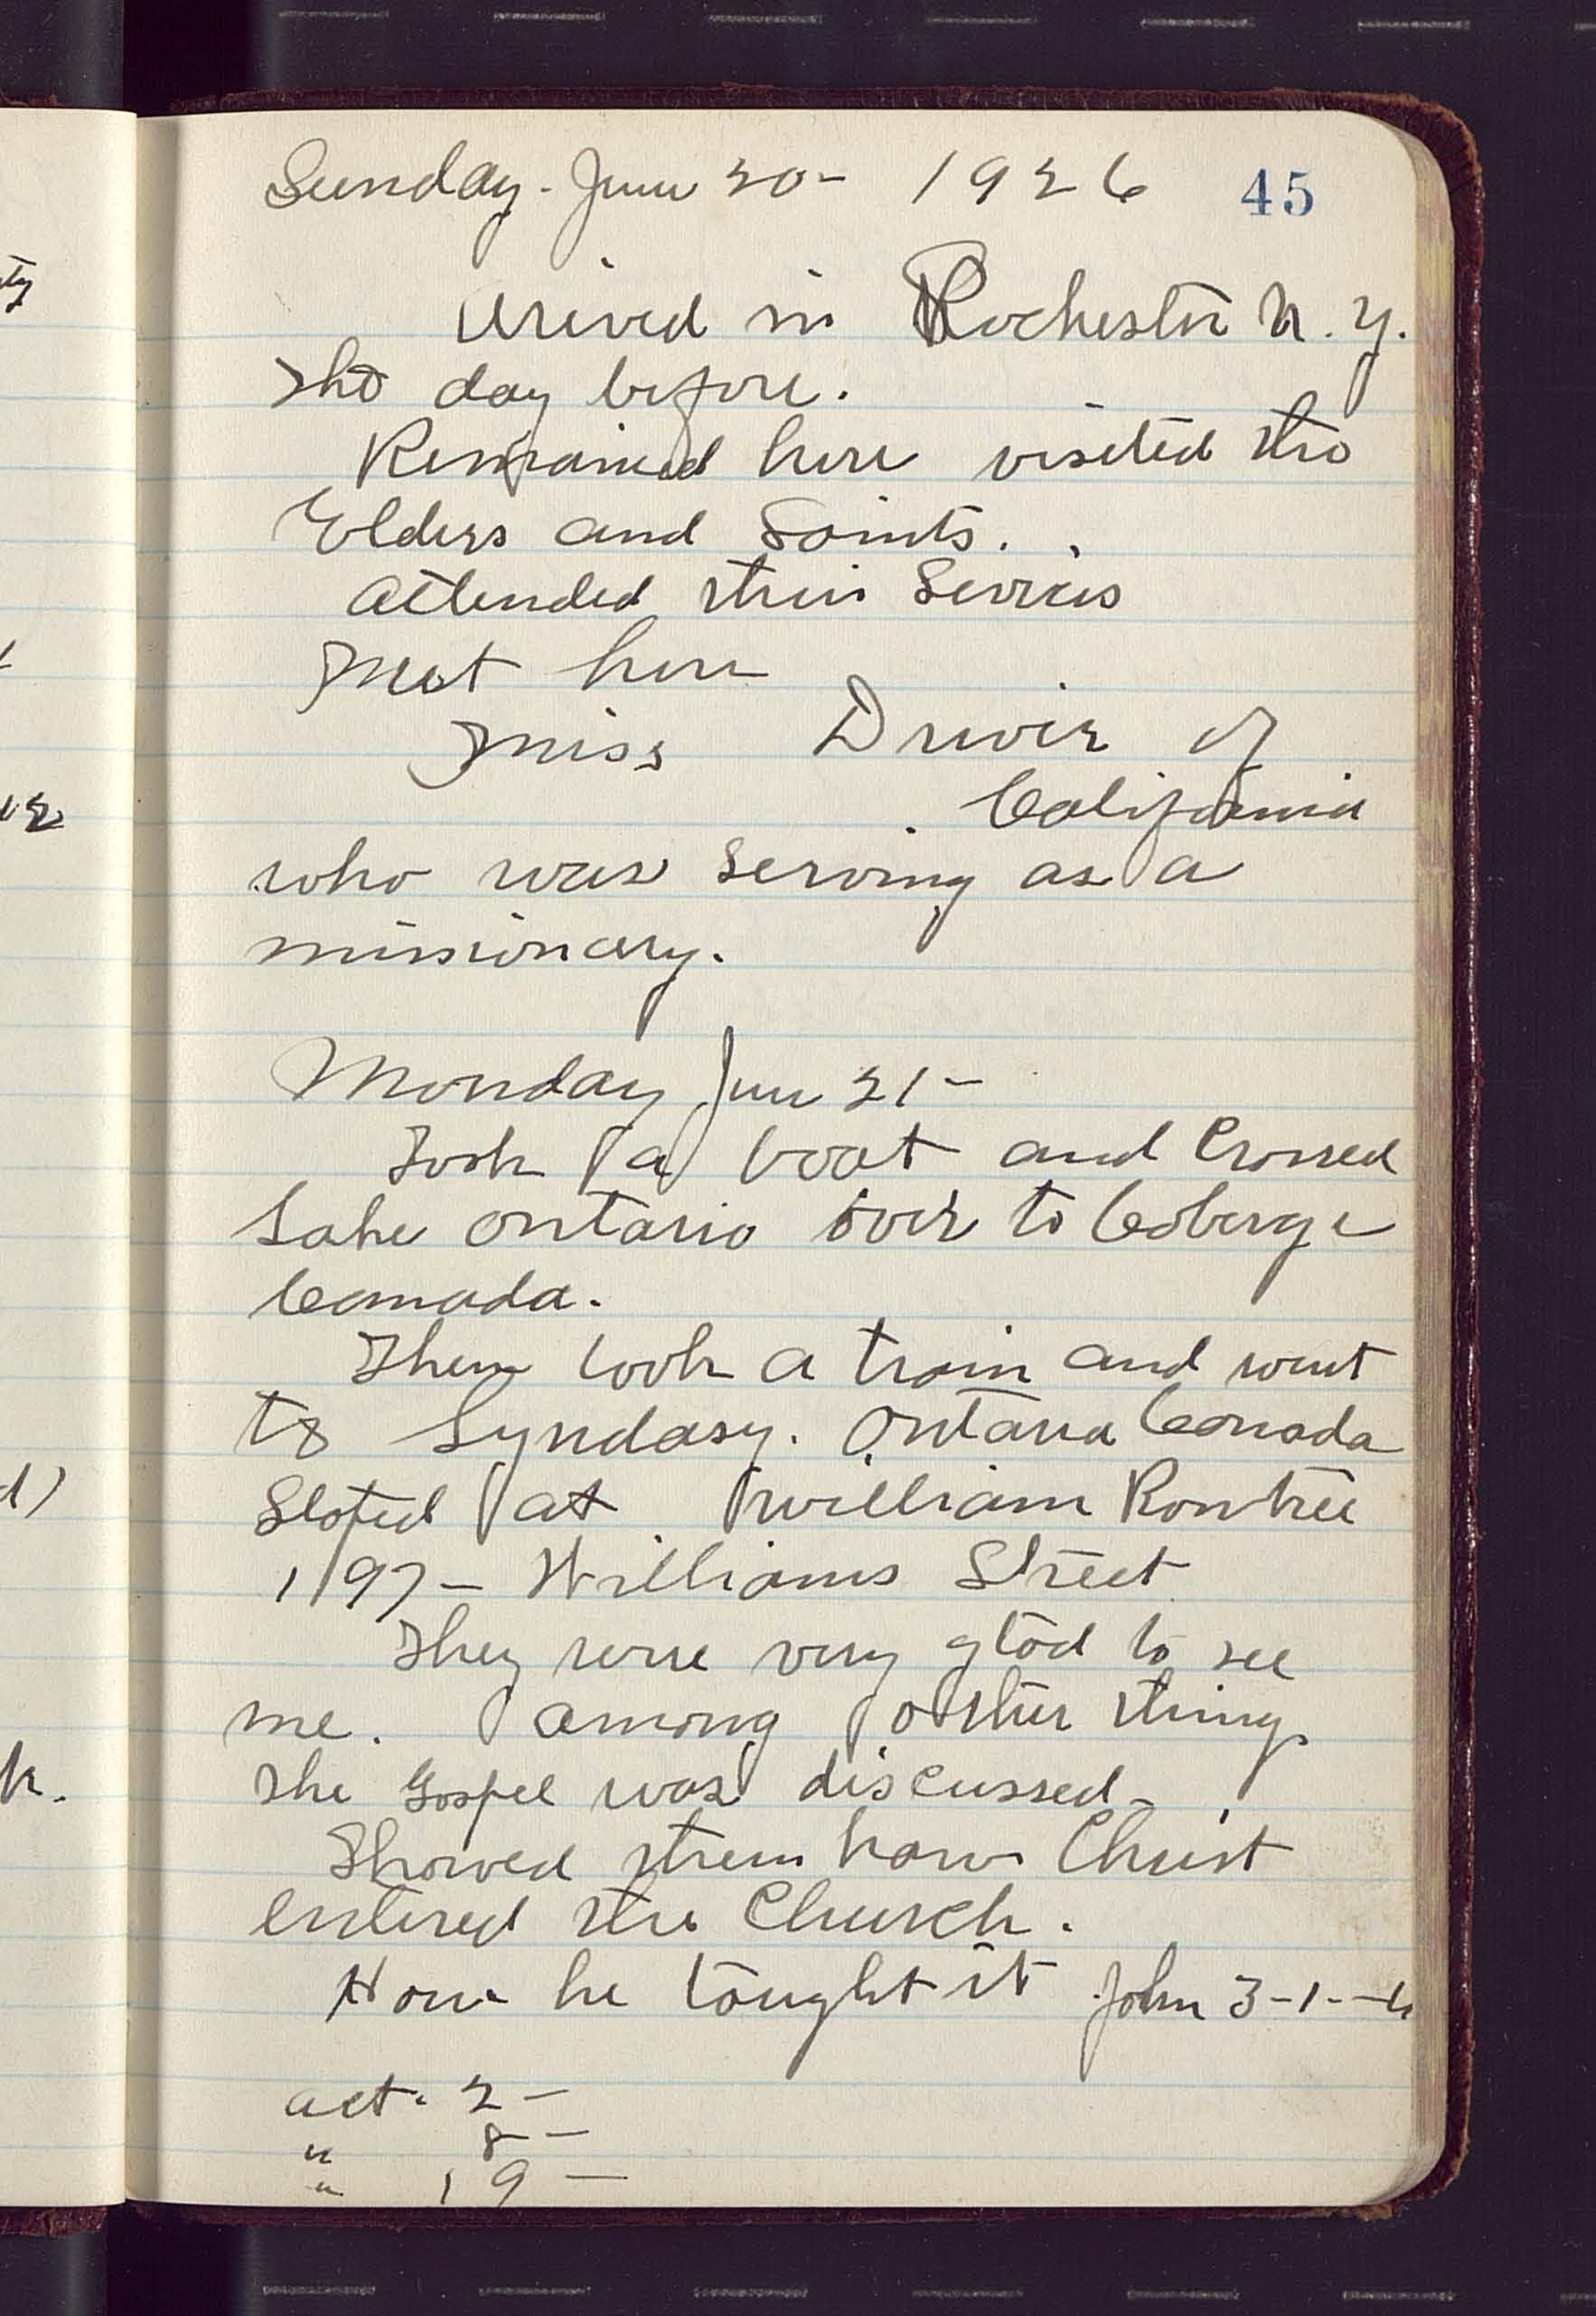 Sunday - June 20 - 1926 45
Arived in Rochester N.Y.
the day before.
Remained here visited the
Elders and Saints.
Attended their Servics
Met here
Miss Driver of
California
who was serving as a
missionary.
Monday June 21 -
Took a boat and Crossed
Lake Ontario over to Coberge
Canada.
Then took a train and went
to Lyndasy. Ontario Canada
Stoped at William Rowtree
197 - Williams Street
They were very glad to see
me. Among other things
the Gospel was discussed -
Showed them how Christ
entered the Church.
How he taught it John 3-1--6
act. 2 -
" 8 -
" 19 -